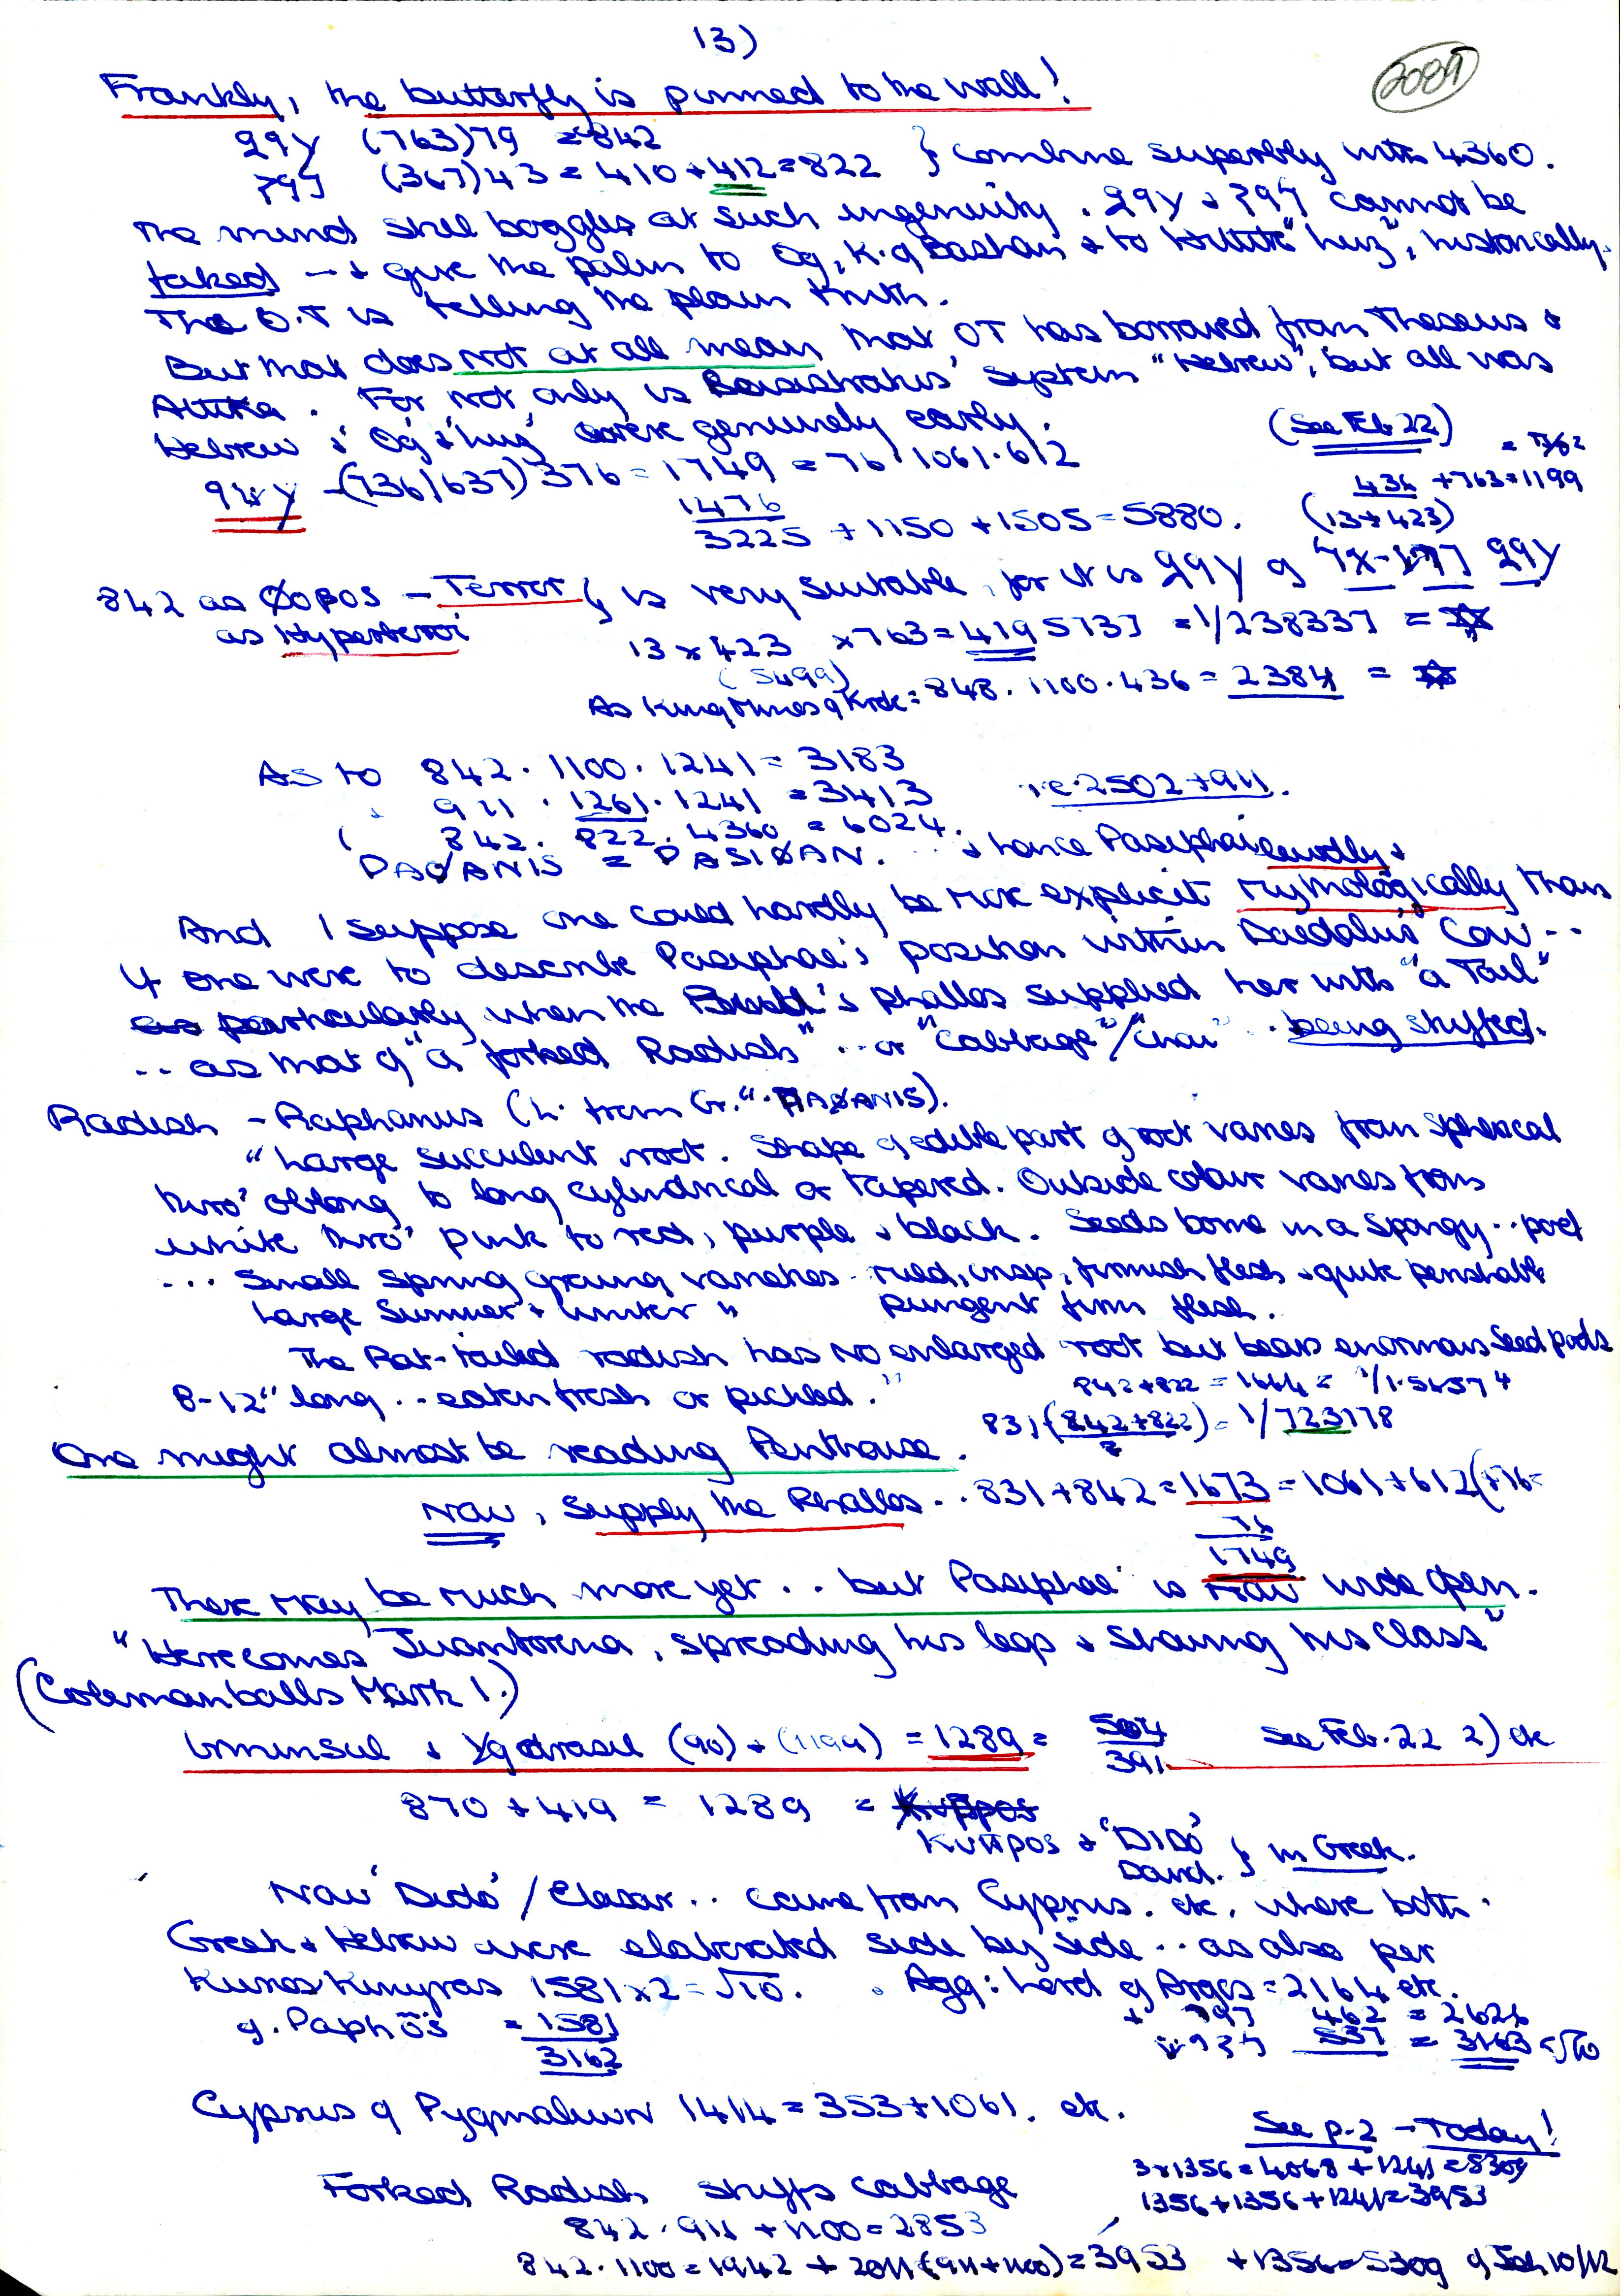 13)
2089
Frankly, the butterfly is pinned to the wall!
(763)79 = 842
(367)43 = 410 + 412 = 822 } combine superbly with 4360.
The mind still boggles at such ingenuity. cannot be
faked — + give the palm to Og, K. of Bashan + to Hittite "huz", historically.
The O.T is telling the plain truth.
But that does not at all mean that OT has borrowed from Theseus +
Attika. For not only is system "Hebrew", but all was
Hebrew + 'Og' + 'huz' were genuinely early.
(See Feb. 22)
(736/637) 376 = 1749 = 76 . 1061 . 612
1476
3225 + 1150 + 1505 = 5880.
436 + 763 = 1199
(13 + 423)
842 as ØOBOS — Terror is very suitable, for it is
as
13 x 423 x 763 = 4195737 = 1/238337 =
(5499)
As King Minos of Krete: 848 . 1100 . 436 = 2384 =
As to 842 . 1100 . 1241 = 3183
911 . 1261 . 1241 = 3413 i.e. 2502 + 911.
( 842 . 822 . 4360 = 6024.
PAØANIS = PASIØAN. + hence Pasiphae lewdly +
And I suppose one could hardly be more explicit mythologically than
if one were to describe Pasiphae's position within Daedalus' Cow..
particularly when the Bull's phallos supplied her with "a Tail"
.. as that of "a forked Radish" .. or "Cabbage"/"Chou" .. being stuffed.
Radish — Raphanus (L. from Gr. "RAØANIS).
"Large succulent root. Shape of edible part of root varies from spherical
thro' oblong to long cylindrical or tapered. Outside colour varies from
white thro' pink to red, purple + black. Seeds borne in a spongy .. pod
... Small spring growing varieties mild, crisp, firmish flesh + quite perishable
Large Summer + Winter " pungent firm flesh.
The Rat-tailed radish has no enlarged root but bears enormous seed pods
8-12" long .. eaten fresh or pickled."
842 + 822 = 1664 =
831 (842 + 822) = 1/723178
2
One might almost be reading Penthouse.
Now, supply the Phallos .. 831 + 842 = 1673 = 1061 + 612 (+ 76 =
76
1749
There may be much more yet .. but Pasiphae is now wide open.
"Here comes Juantorena, spreading his legs + showing his class"
(Colemanballs Mark 1.)
Irminsul + Ygdrasil (90) + (1199) = 1289 = 504
391
See Feb. 22 2) etc
870 + 419 = 1289 =
Kuπpos + 'DIDO' } in Greek.
David.
Now 'Dido' / Elissar .. came from Cyprus. etc. where both
Greek + Hebrew were elaborated side by side .. as also per
Kinyras 1581 x 2 = √10. Agg: Lord of Argos = 2164 etc.
of Paphos = 1581
3162
+ 462 = 2626
537 = 3163 = √10
Cyprus of Pygmalion 1414 = 353 + 1061. etc.
See p.2 — Today!
3 x 1356 = 4068 + 1241 = 5309
1356 + 1356 + 1241 = 3953
Forked Radish stuffs cabbage
842 . 911 + 1100 = 2853
842 . 1100 = 1942 + 2011 (911 + 1100) = 3953 + 1356 = 5309 of Josh 10/12